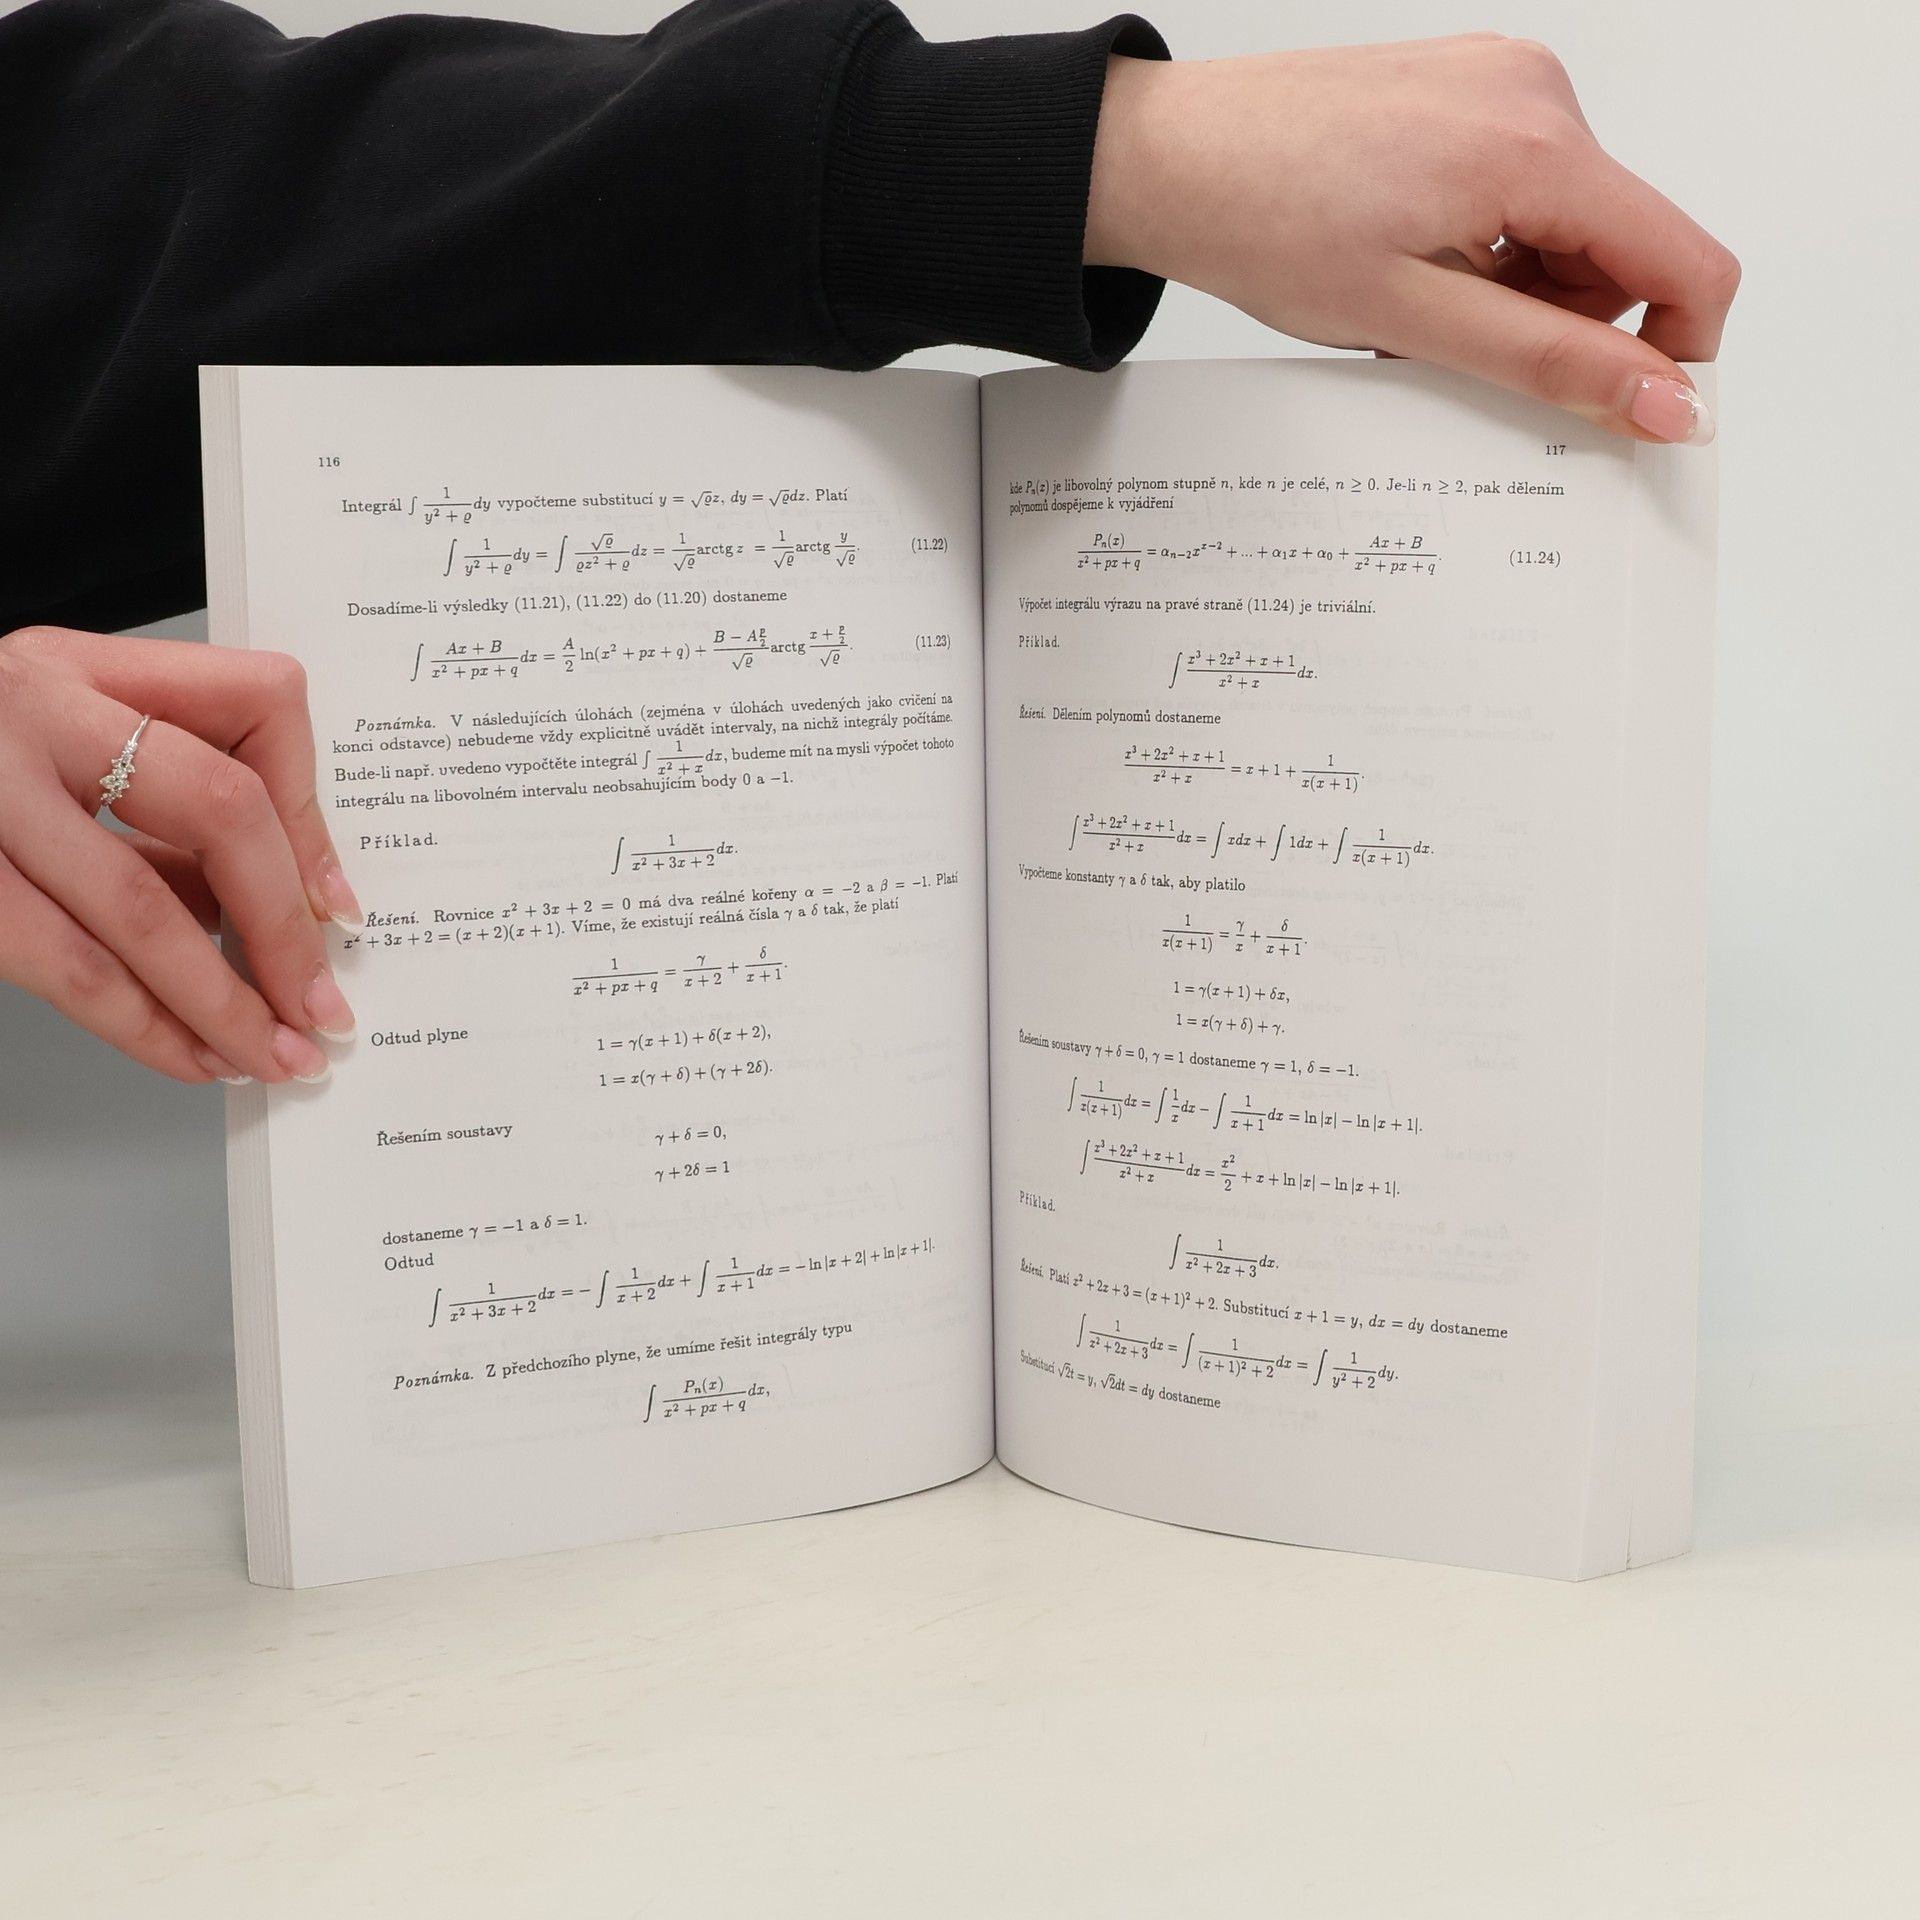 116
Integrál ∫ 1/(y² + ϱ) dy vypočteme substitucí y = √ϱz, dy = √ϱdz. Platí
∫ 1/(y² + ϱ) dy = ∫ √ϱ/(ϱz² + ϱ) dz = 1/√ϱ arctg z = 1/√ϱ arctg y/√ϱ. (11.22)
Dosadíme-li výsledky (11.21), (11.22) do (11.20) dostaneme
∫ (Ax + B)/(x² + px + q) dx = A/2 ln(x² + px + q) + (B − A p/2)/√ϱ arctg (x + p/2)/√ϱ. (11.23)
Poznámka. V následujících úlohách (zejména v úlohách uvedených jako cvičení na
konci odstavce) nebudeme vždy explicitně uvádět intervaly, na nichž integrály počítáme.
Bude-li např. uvedeno vypočtěte integrál ∫ 1/(x² + x) dx, budeme mít na mysli výpočet tohoto
integrálu na libovolném intervalu neobsahujícím body 0 a −1.
Příklad.
∫ 1/(x² + 3x + 2) dx.
Řešení. Rovnice x² + 3x + 2 = 0 má dva reálné kořeny α = −2 a β = −1. Platí
x² + 3x + 2 = (x + 2)(x + 1). Víme, že existují reálná čísla γ a δ tak, že platí
1/(x² + px + q) = γ/(x + 2) + δ/(x + 1).
Odtud plyne
1 = γ(x + 1) + δ(x + 2),
1 = x(γ + δ) + (γ + 2δ).
Řešením soustavy
γ + δ = 0,
γ + 2δ = 1
dostaneme γ = −1 a δ = 1.
Odtud
∫ 1/(x² + 3x + 2) dx = − ∫ 1/(x + 2) dx + ∫ 1/(x + 1) dx = − ln |x + 2| + ln |x + 1|.
Poznámka. Z předchozího plyne, že umíme řešit integrály typu
∫ Pₙ(x)/(x² + px + q) dx,
117
kde Pₙ(x) je libovolný polynom stupně n, kde n je celé, n ≥ 0. Je-li n ≥ 2, pak dělením
polynomů dospějeme k vyjádření
Pₙ(x)/(x² + px + q) = αₙ₋₂xˣ⁻² + ... + α₁x + α₀ + (Ax + B)/(x² + px + q). (11.24)
Výpočet integrálu výrazu na pravé straně (11.24) je triviální.
Příklad.
∫ (x³ + 2x² + x + 1)/(x² + x) dx.
Řešení. Dělením polynomů dostaneme
(x³ + 2x² + x + 1)/(x² + x) = x + 1 + 1/(x(x + 1)).
∫ (x³ + 2x² + x + 1)/(x² + x) dx = ∫ xdx + ∫ 1dx + ∫ 1/(x(x + 1)) dx.
Vypočteme konstanty γ a δ tak, aby platilo
1/(x(x + 1)) = γ/x + δ/(x + 1).
1 = γ(x + 1) + δx,
1 = x(γ + δ) + γ.
Řešením soustavy γ + δ = 0, γ = 1 dostaneme γ = 1, δ = −1.
∫ 1/(x(x + 1)) dx = ∫ 1/x dx − ∫ 1/(x + 1) dx = ln |x| − ln |x + 1|.
∫ (x³ + 2x² + x + 1)/(x² + x) dx = x²/2 + x + ln |x| − ln |x + 1|.
Příklad.
∫ 1/(x² + 2x + 3) dx.
Řešení. Platí x² + 2x + 3 = (x + 1)² + 2. Substitucí x + 1 = y, dx = dy dostaneme
∫ 1/(x² + 2x + 3) dx = ∫ 1/((x + 1)² + 2) dx = ∫ 1/(y² + 2) dy.
Substitucí √2t = y, √2dt = dy dostaneme